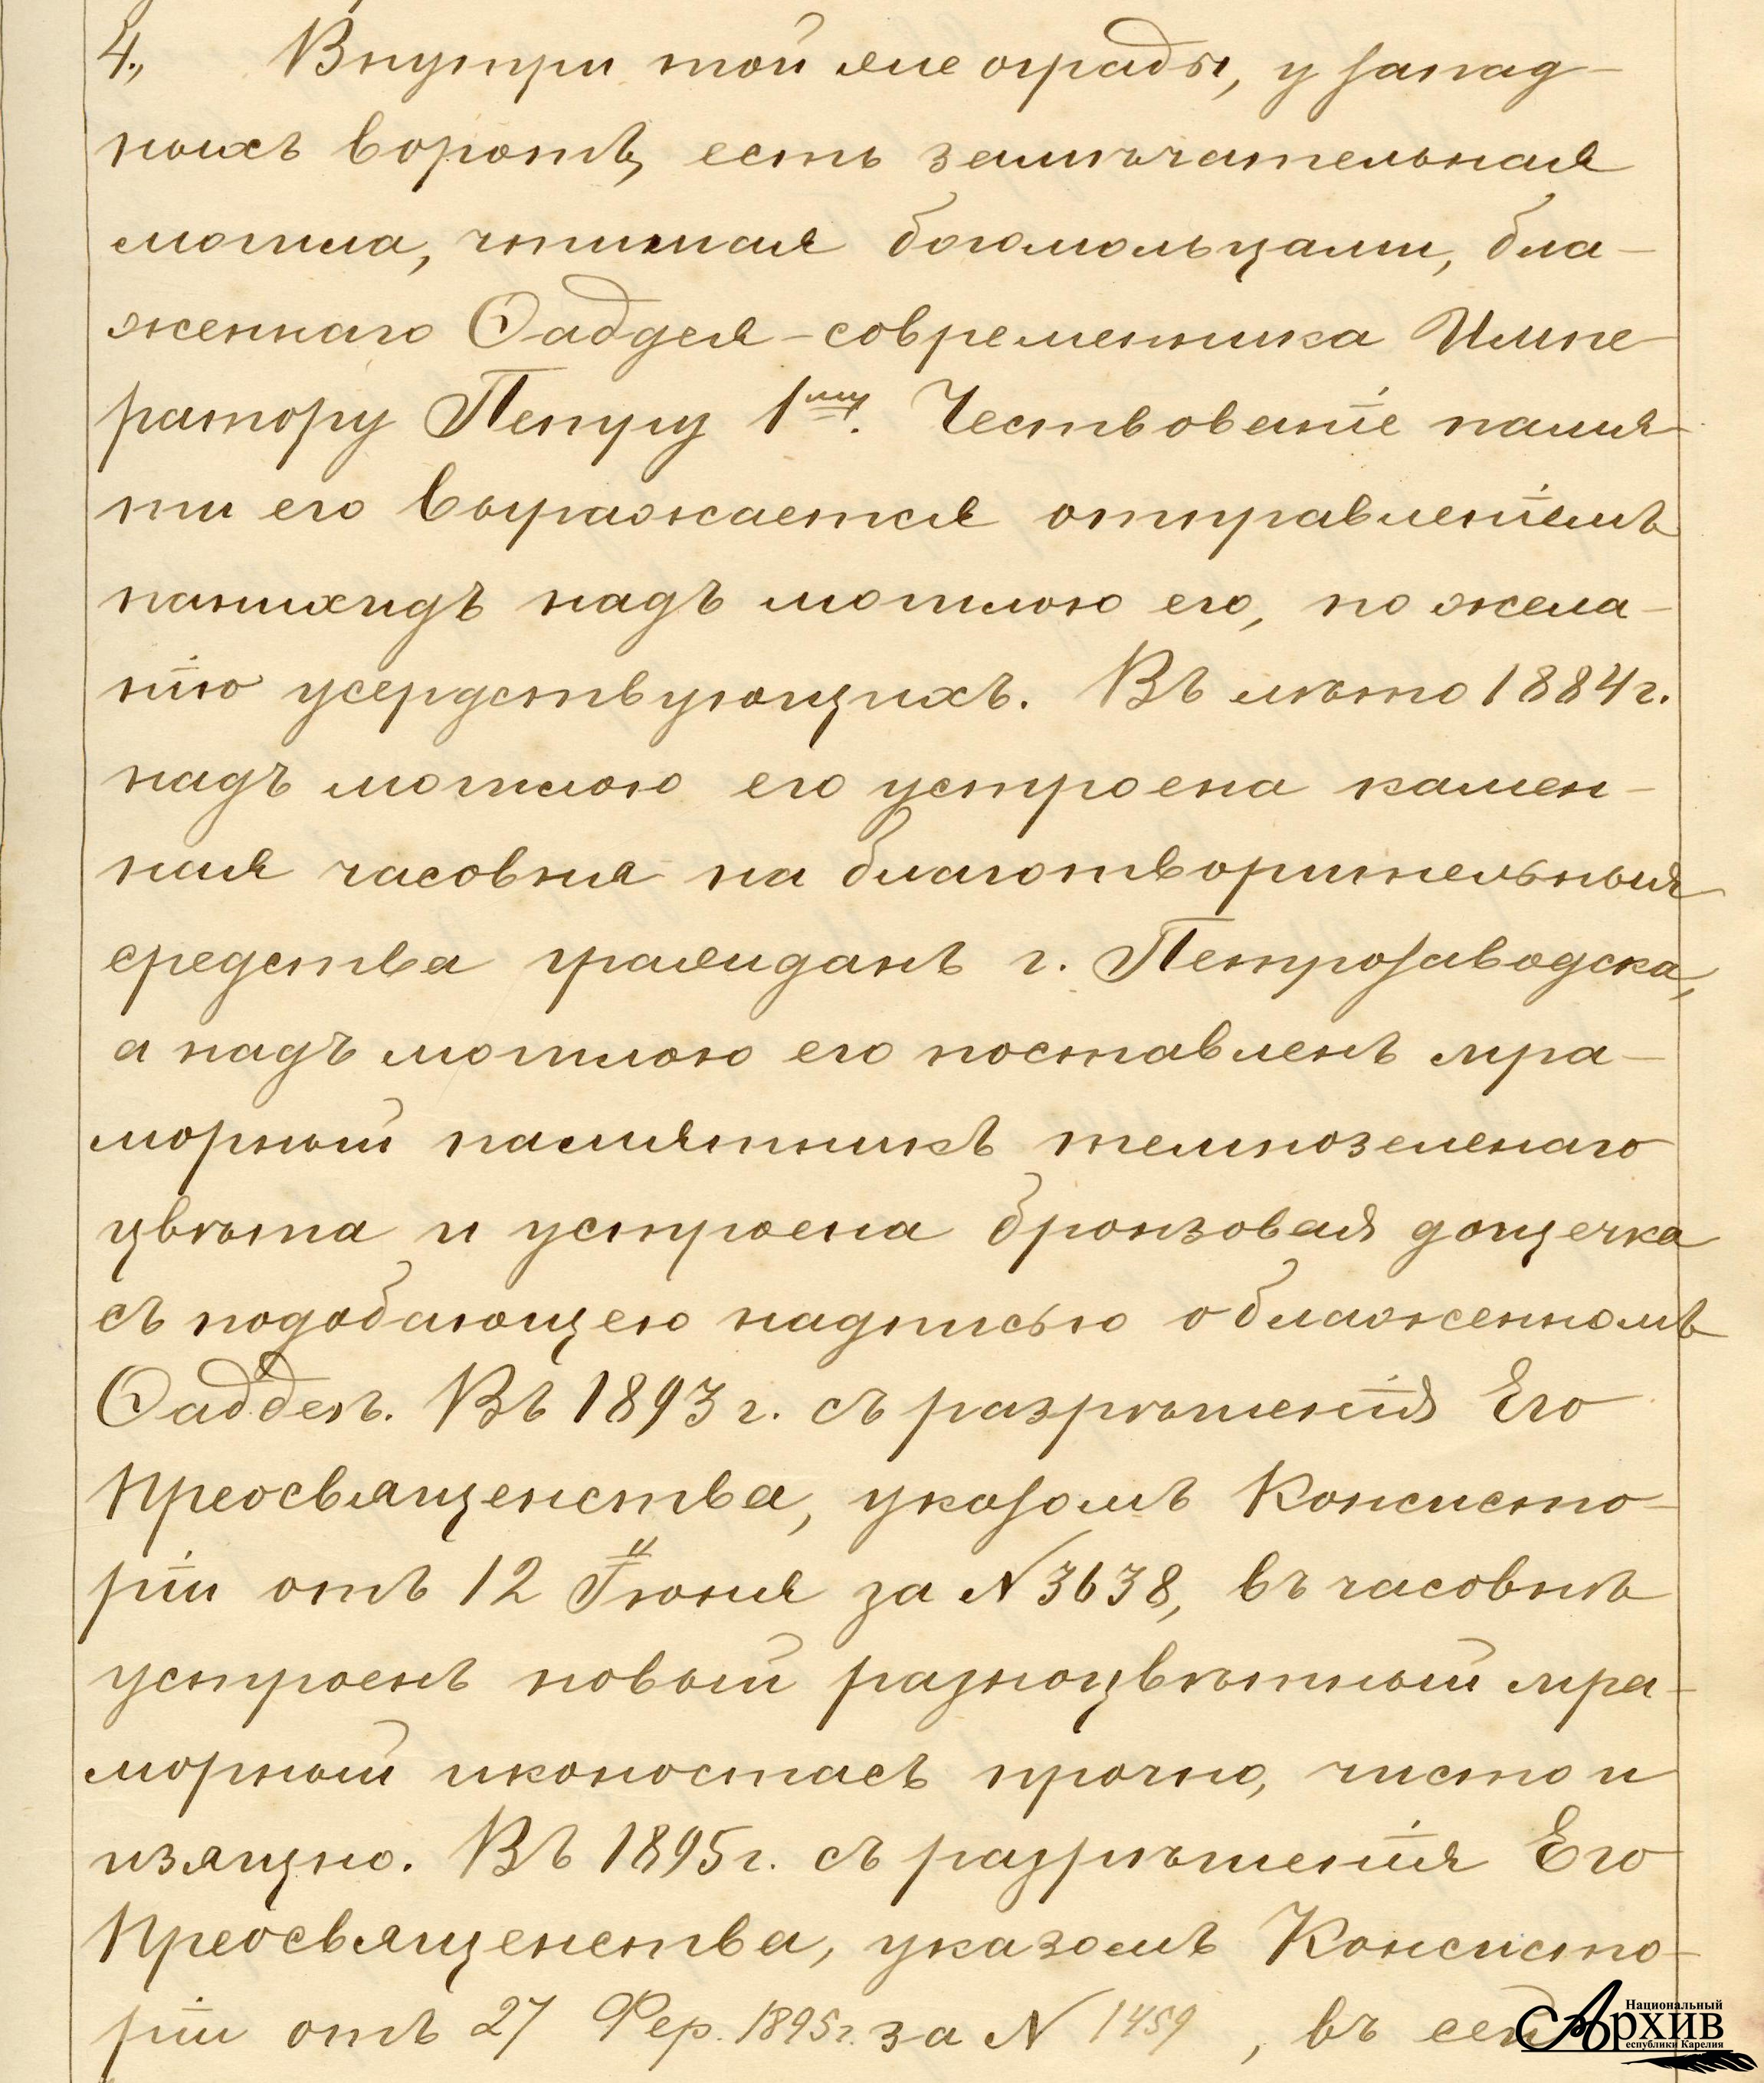 4., Внутри той же ограды, у запад-
ныхъ воротъ, есть замѣчательная
могила, чтимая богомольцами, бла-
женнаго Ѳаддея - современника Импе-
ратору Петру 1му. Чествованіе памя-
ти его выражается отправленіемъ
панихидъ надъ могилою его, по жела-
нію усердствующихъ. Въ лѣто 1884 г.
надъ могилою его устроена камен-
ная часовня на благотворительныя
средства гражданъ г. Петрозаводска,
а надъ могилою его поставленъ мра-
морный памятникъ темнозеленаго
цвѣта и устроена бронзовая дощечка
съ подобающею надписью о блаженномъ
Ѳаддеѣ. Въ 1893 г. съ разрѣшенія Его
Преосвященства, указомъ Консисто-
ріи отъ 12 Іюня за N 3638, въ часовнѣ
устроенъ новый разноцвѣтный мра-
морный иконостасъ прочно, чисто и
изящно. Въ 1895 г. съ разрѣшенія Его
Преосвященства, указомъ Консисто-
ріи отъ 27 Фер. 1895 г. за N 1459, въ
Национальный
Архив
Республики Карелия